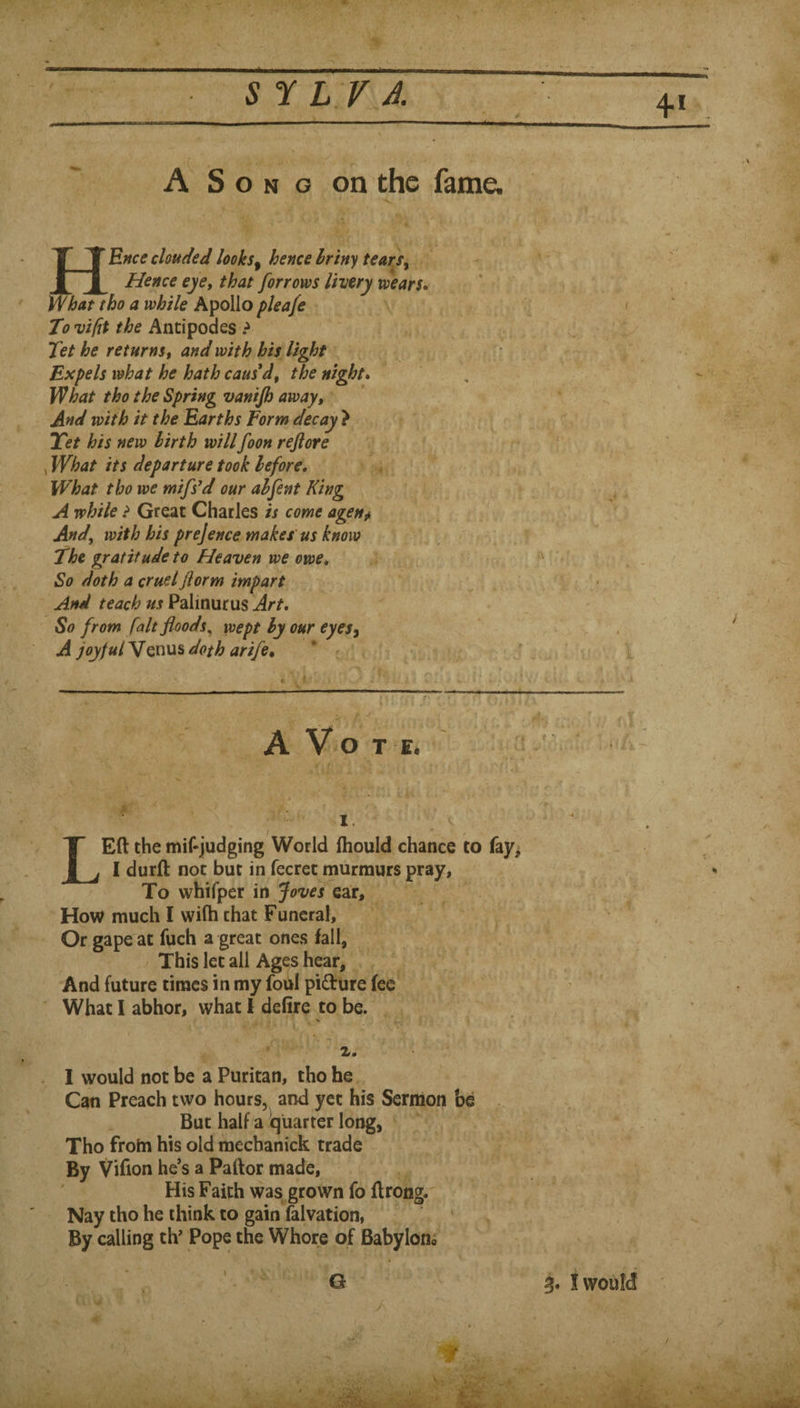 SYLVA. 41
A SONG on the ſame.
HEnce clouded looks, hence briny tears,
Hence eye, that ſorrows livery wears.
What tho a while Apollo pleaſe
To viſit the Antipodes ?
Yet he returns, and with his light
Expels what he hath caus'd, the night.
What tho the Spring vaniſh away,
And with it the Earths Form decay ?
Yet his new birth will ſoon reſtore
What its departure took before.
What tho we miſs'd our abſent King
A while ? Great Charles is come agen,
And, with his preſence makes us know
The gratitude to Heaven we owe.
So doth a cruel ſtorm impart
And teach us Palinurus Art.
So from ſalt floods, wept by our eyes,
A joyful Venus doth ariſe.
A VOTE.
1.
LEſt the miſ-judging World ſhould chance to ſay,
I durſt not but in ſecret murmurs pray,
To whiſper in Joves ear,
How much I wiſh that Funeral,
Or gape at ſuch a great ones fall,
This let all Ages hear,
And future times in my ſoul picture ſee
What I abhor, what I deſire to be.
2.
I would not be a Puritan, tho he
Can Preach two hours, and yet his Sermon be
But half a quarter long,
Tho from his old mechanick trade
By Viſion he's a Paſtor made,
His Faith was grown ſo ſtrong.
Nay tho he think to gain ſalvation,
By calling th' Pope the Whore of Babylon.
G 3. I would